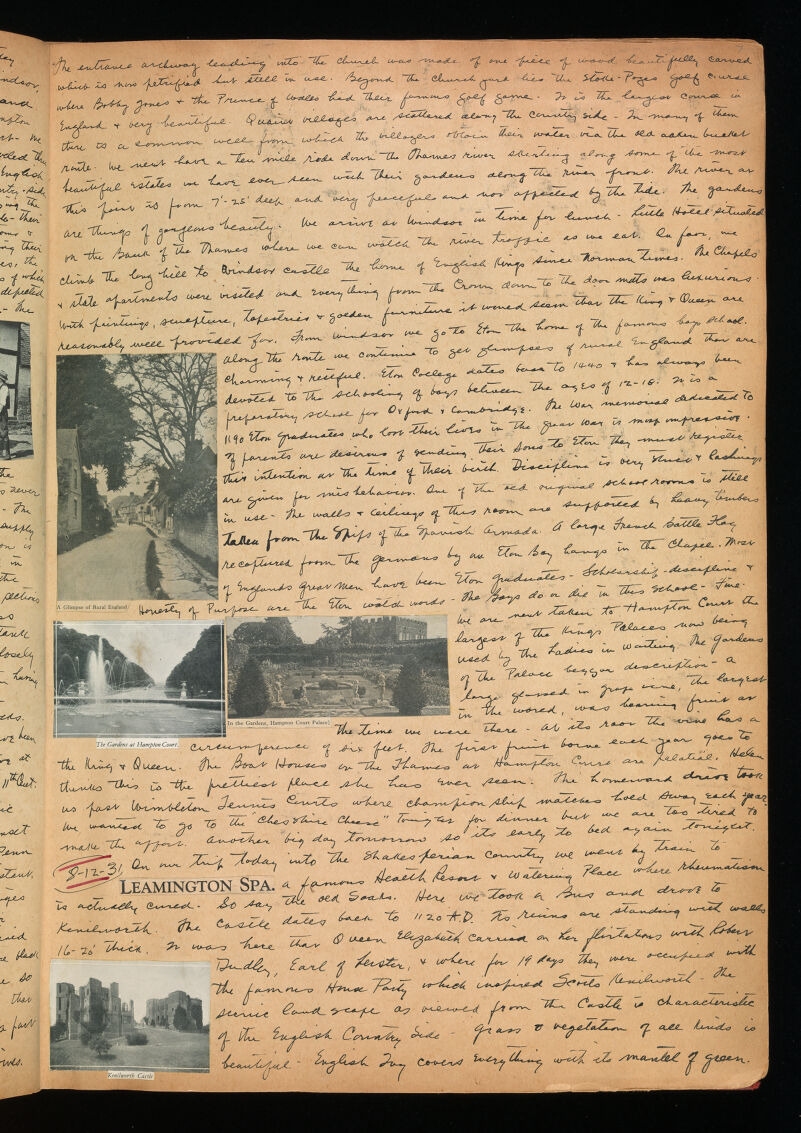 The entrance archway leading into the church was made of one piece of wood beautifully carved
which is now petrified but still in use. Beyond the Church yard lies the Stoke-Poges golf course
where Bobby Jones & the Prince of Wales had their famous golf game. It is the largest course in
England & very beautiful. Quaint villages are scattered along the country side - In many of them
there is a common well from which the villagers obtain their water via the old oaken bucket
route. We next have a ten mile ride down the Thames river skirting along some of the most
beautiful estates we have ever seen with their gardens along the river front. The river at
this point is from 7'-25' deep and very peaceful and not affected by the tide. The gardens
are things of gorgeous beauty. We arrive at Windsor in time for lunch - Little Hotel situated
on the Bank of the Thames where we can watch the river traffic as we eat. On foot, we
climb the long hill to Windsor castle the home of English Kings since Norman times. The Chapels
& state apartments were visited and everything from the Crown down to the door mats was luxurious.
With paintings, sculpture, tapestries & golden furniture it would seem that the King & Queen are
reasonably well provided for. From Windsor we go to Eton the home of the famous boys school.
Along the route we continue to get glimpses of rural England that are
charming & restful. Eton College dates back to 1440 & has always been
devoted to the schooling of boys between the ages of 12-18. It is a
preparatory school for Oxford & Cambridge. The War memorial dedicated to
1190 Eton graduates who lost their lives in the great war is most impressive.
If parents are desirous of sending their sons to Eton they must register
this intention at the time of their birth. Discipline is very strict & lashings
are given for misbehavior. One of the old original school rooms is still
in use - The walls & ceilings of this room are supported by heavy timbers
taken from the ships of the Spanish Armada. A large French Battle Flag
recaptured from the Germans by an Eton Boy hangs in the Chapel. Most
of Englands great men have been Eton graduates - Scholarship - discipline &
A Glimpse of Rural England
Honesty of Purpose are the Eton watch words - The Boys do or die in this School - Fine.
We are next taken to Hampton Court the
largest of the Kings Palaces now being
used by the Ladies in Waiting. The Gardens
of the Palace beggar description - a
large glassed in grape vine, the largest
in the world, was bearing fruit at
In the Gardens, Hampton Court Palace
the time we were there. At its root the vine has a
The Gardens at Hampton Court.
circumference of six feet. The first fruit borne each year goes to
the King & Queen. The Boat Houses on the Thames at Hampton Court are palatial. Helen
thinks this is the prettiest place she has ever seen. The homeward drive took
us past Wimbleton Tennis Courts where championship matches hold sway each year.
We wanted to go to the "Cheshire Cheese" tonight for dinner but we are too tired to
make the effort. Another big day tomorrow so its early to bed again tonight.
8-12-31 On our trip today into the Shakesperian country we went by train to
LEAMINGTON SPA. a famous Health Resort & Watering Place where rheumatism
is actually cured. So say the old Soaks. Here we took a Bus and drove to
Kenilworth. The Castle dates back to 1120 A.D. Its ruins are standing with walls
16-20' thick. It was here that Queen Elizabeth carried on her flirtations with Robert
Dudley, Earl of Leister, & where for 19 days they were occupied with
the famous House Party which inspired Scotts Kenilworth - The
scenic landscape as viewed from the Castle is characteristic
of the English Country Side - Grass & vegetation of all kinds is
beautiful - English Ivy covers everything with its mantel of green.
Kenilworth Castle